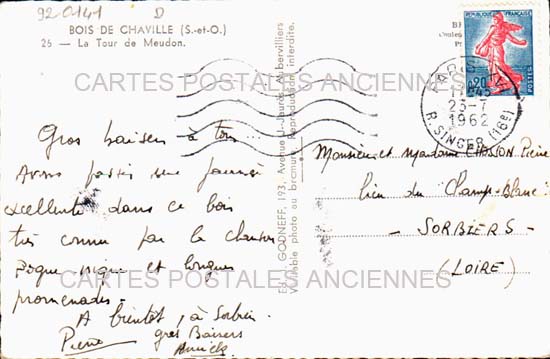 920141 D
BOIS DE CHAVILLE (S.-et-O.)
26 — La Tour de Meudon.
RÉPUBLIQUE FRANÇAISE
0,20
POSTES
PARIS
23-7
1962
R. SINGER (16e)
CARTES POSTALES ANCIENNES
Ed. J. GODNEFF, 193, Avenue J.-Jaurès, Aubervilliers
Véritable photo au bromure. Reproduction interdite.
Gros baisers à tous
Avons passé une journée
excellente dans ce bois
très connu par la chanson
Pique-nique et longues
promenades.
A bientôt, à Sorbiers
Pierre gros Baisers
Annick
Monsieur et Madame Pierre
lieu du Champ-Blanc
SORBIERS -
(LOIRE)
CARTES POSTALES ANCIENNES